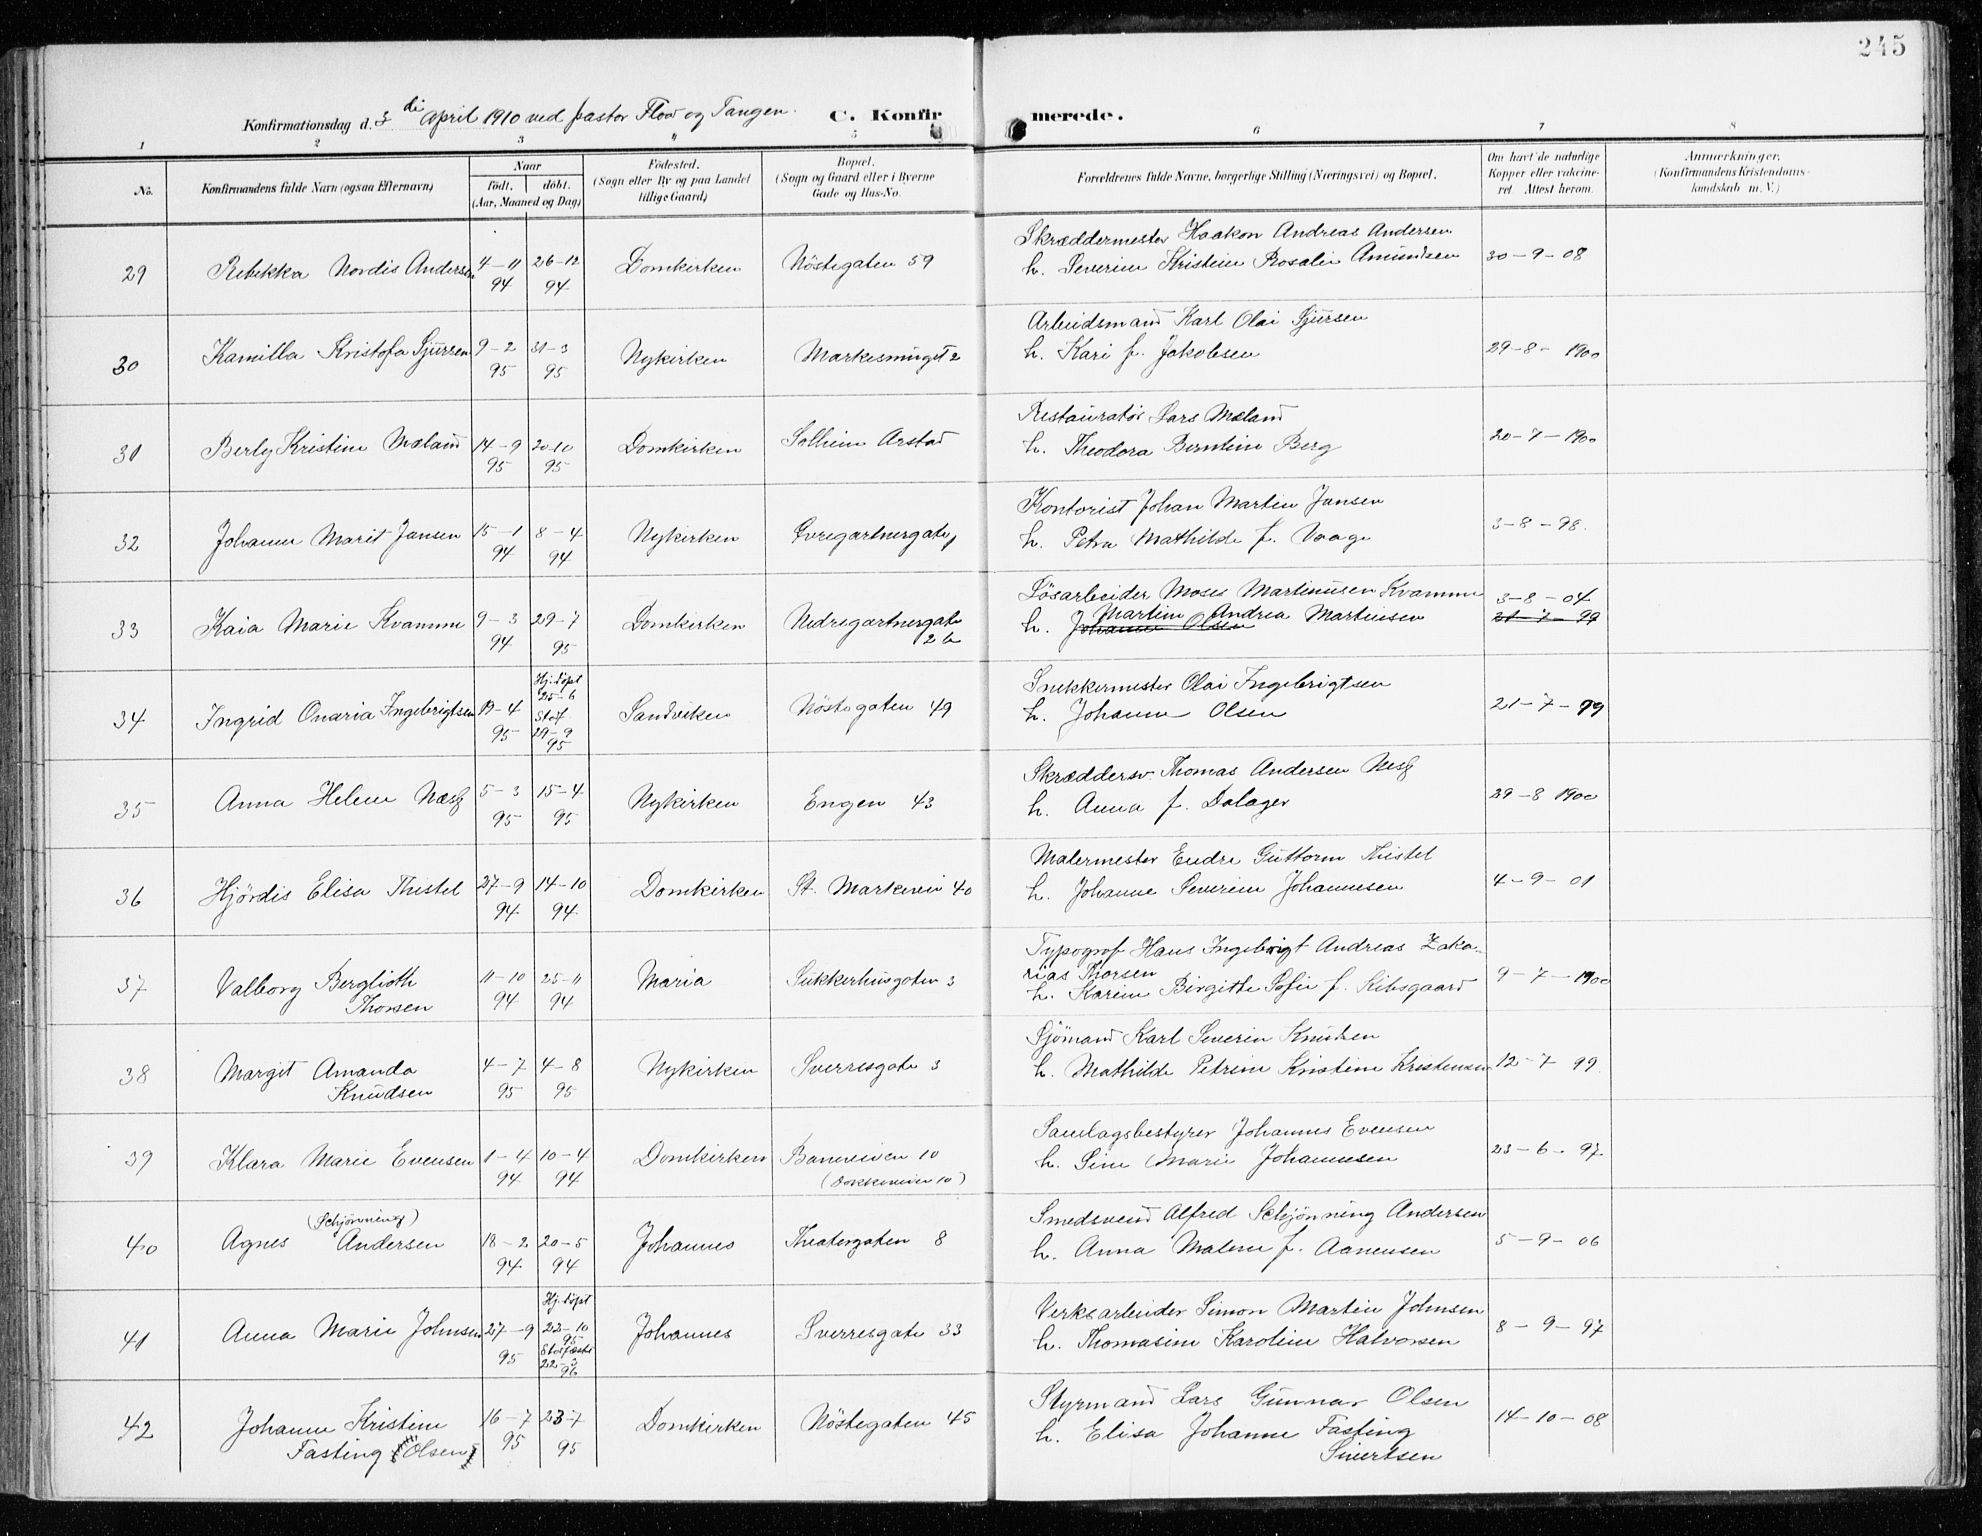 245
Konfirmationsdag d. 3 di April 1910 ved pastor Floor og Tangen. C. Konfirmerede.
1 2 3 4 5 6 7 8
No. Konfirmandens fulde Navn (ogsaa Efternavn) Naar født. døbt. (Aar, Maaned og Dag) Fødested. (Sogn eller By og paa Landet tillige Gaard) Bopæl. (Sogn og Gaard eller i Byerne Gade og Hus-No. Forældrenes fulde Navne, borgerlige Stilling (Næringsvei) og Bopæl. Om havt de naturlige Kopper eller vakcineret. Attest herom. Anmærkninger. (Konfirmandens Kristendomskundskab m. V.)
29 Rebekka Nordis Andersen 4-11 94 26-12 94 Domkirken Nöstegaten 59 Skræddermester Haakon Andreas Andersen
h. Severine Kristine Rosalie Amundsen 30-9-08
30 Kamilla Kristofa Sjursen 9-2 95 31-3 95 Nykirken Markesmuget 2 Arbeidsmand Karl Olai Sjursen
h. Kari f. Jakobsen 29-8-1900
31 Berly Kristine Mæland 14-9 95 20-10 95 Domkirken Solheim Arstad Restauratør Lars Mæland
h. Theodora Berntine Berg 20-7-1900
32 Johanne Marit Jansen 15-1 94 8-4 94 Nykirken Øvregartnergate Kontorist Johan Martin Jansen
h. Petra Mathilde f. Vaage 3-8-98.
33 Kaia Marie Kvamme 9-3 94 29-7 95 Domkirken Nedregartnergate 2b Løsarbeider Moses Martinusen Kvamme
h. Johanne Olsen Martine Andrea Martinsen 3-8-04
21-7-99
34 Ingrid Onaria Ingebrigtsen 19-4 95 Hj.døpt 25-6 Stof. 29-9 95 Sandviken Nöstegaten 49 Snekkermester Olai Ingebrigtsen
h. Johanne Olsen 21-7-99
35 Anna Helene Næss 5-3 95 15-4 95 Nykirken Engen 43 Skræddersv. Thomas Andersen Ness
h. Anna f. Dalager 29-8 1900
36 Hjördis Elisa Thistel 27-9 94 14-10 94 Domkirken St. Markevei 40 Malermester Endre Guttorm Thistel
h. Johanne Severine Johannesen 4-9-01
37 Valborg Berglioth
Thorsen 11-10 94 25-11 94 Maria Sukkerhusgaten 3 Typograf Hans Ingebrigt Andreas Zakarias Thorsen
h. Karine Birgitte Sofie f. Kibsgaard 9-7-1900
38 Margit Amanda
Knudsen 4-7 95 4-8 95 Nykirken Sverresgate 3 Sjömand Karl Severin Knudsen
h. Mathilde Petrine Kristine Kristensen 12-7 99.
39 Klara Marie Evensen 1-4 94 10-4 94 Domkirken Baneveien 10
(Dokkeveien 10) Samlagsbestyrer Johannes Evensen
h. Sine Marie Johannesen 23-6-97
40 (Schjönning)
Agnes Andersen 18-2 94 20-5 94 Johannes Theatergaten 8 Smedsvend Alfred Schjönning Andersen
h. Anna Malene f. Aanensen 5-9-06
41 Anna Marie Johnsen 27-9 95 Hj.døpt 22-10 95 Stadfæstet 22-3 96 Johannes Sverresgate 33 Verksarbeider Simon Martin Johnsen
h. Thomasine Karoline Halvorsen 8-9-97
42 Johanne Kristine
Fasting (Olsen) 16-7 95 23-7 95 Domkirken Nöstegaten 45 Styrmand Lars Gunnar Olsen
h. Elisa Johanne Fasting
Sivertsen 14-10-08